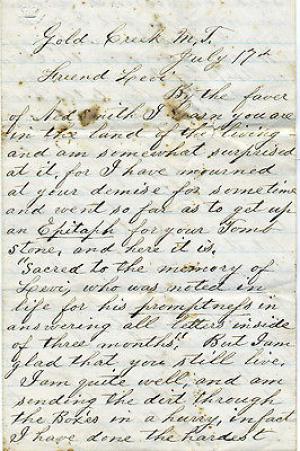 Gold Creek M.T.
July 17th
Friend Levi
By the favor
of Ned Smith I learn you are
in the land of the living
and am somewhat surprised
at it, for I have mourned
at your demise for sometime
and went so far as to get up
an Epitaph for your Tomb
stone, and here it is.
"Sacred to the memory of
Levi, who was noted in
life for his promptness in
answering all letters inside
of three months." But I am
glad that you still live.
I am quite well, and am
sending the dirt through
the Boxes in a hurry, in fact
I have done the hardest